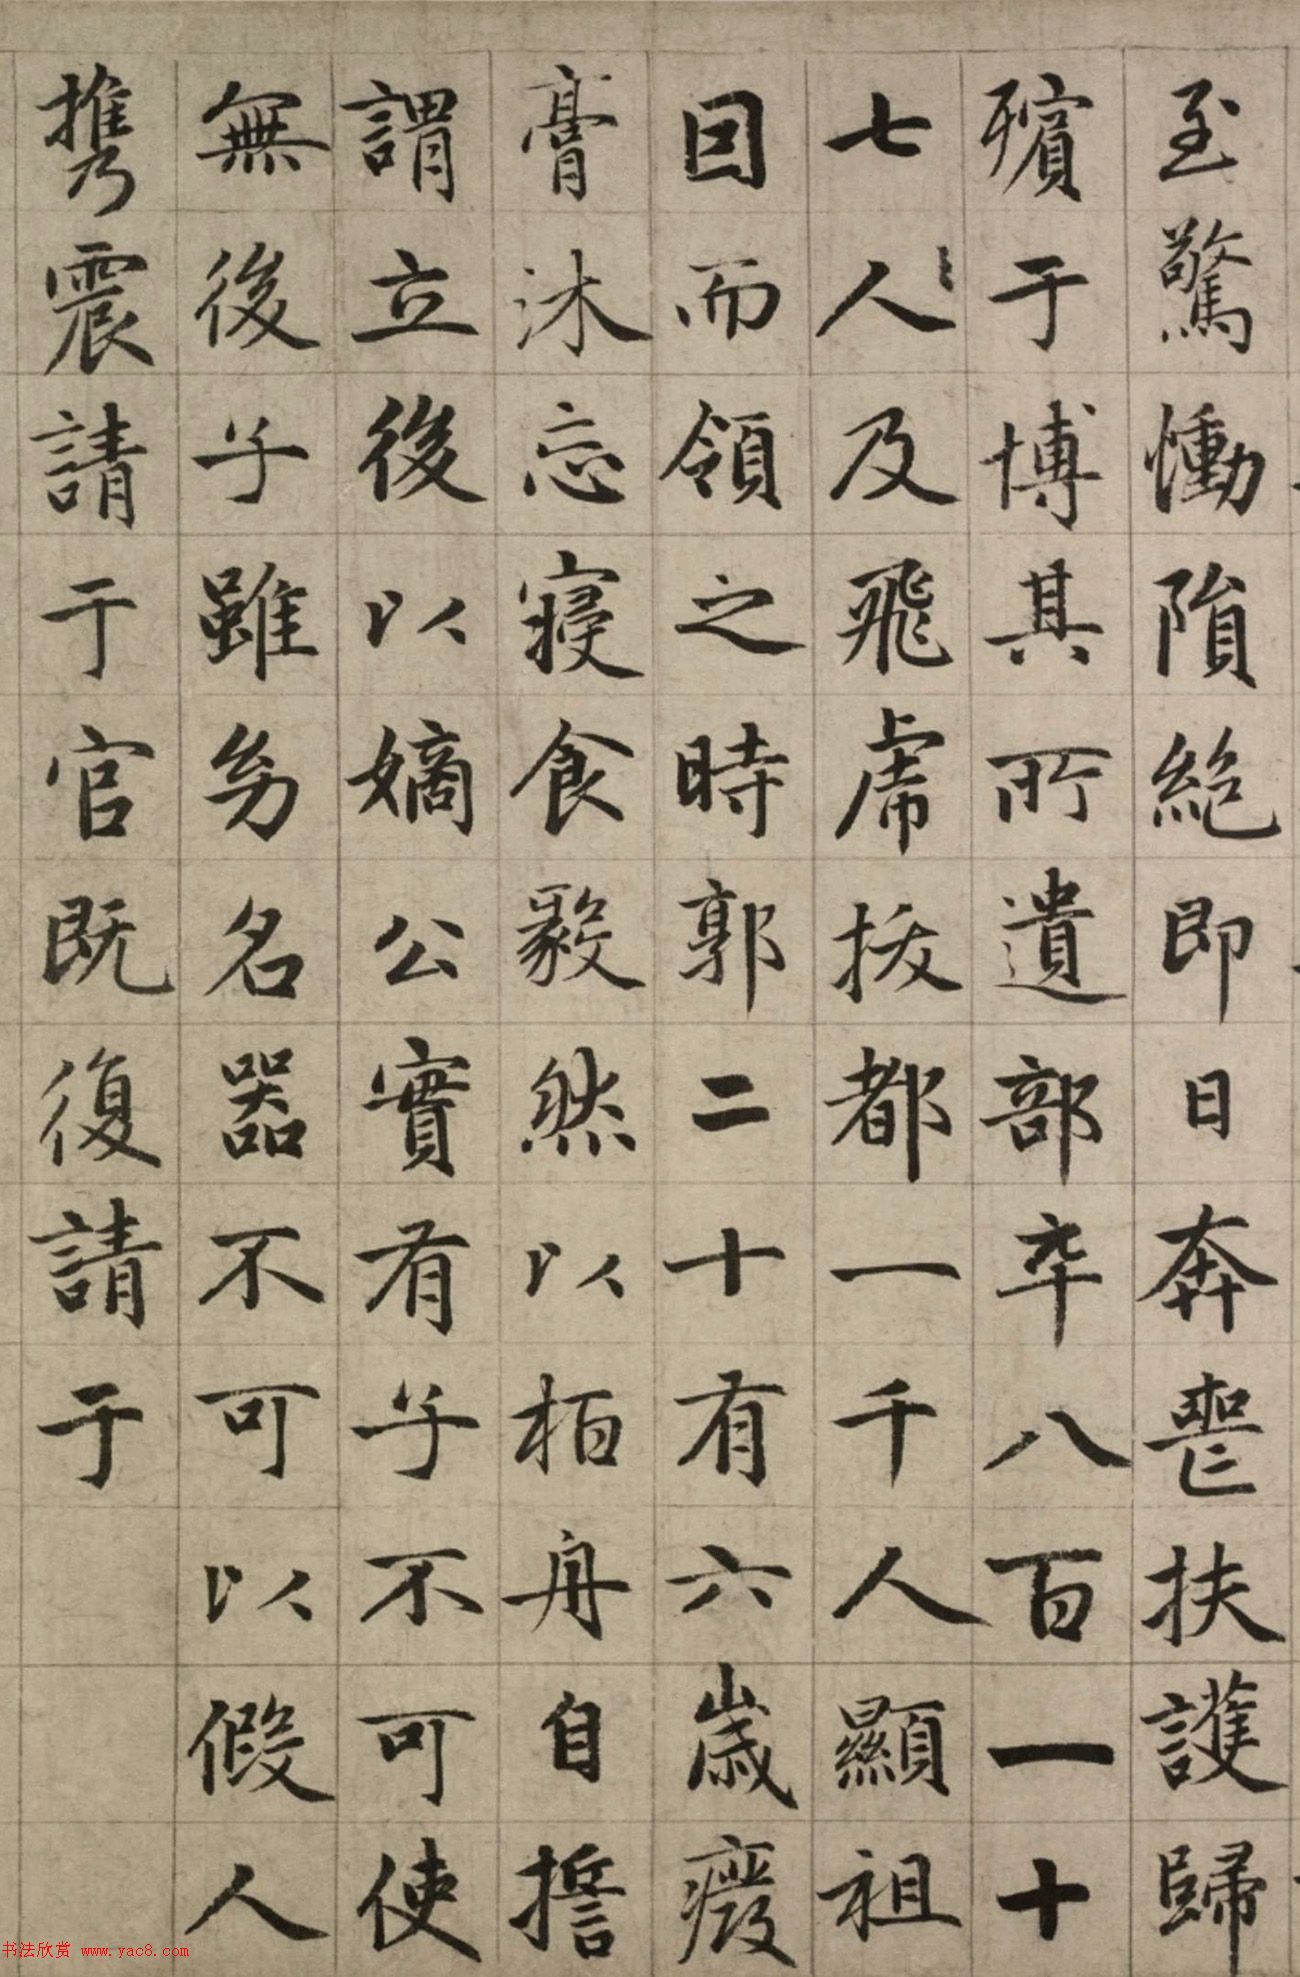 至驚慟隕絕即日奔喪扶護歸
殯于博其所遺部卒八百一十
七人及飛虎援都一千人顯祖
回而領之時郭二十有六歲癈
膏沐忘寢食毅然以柏舟自誓
謂立後以嫡公實有子不可使
無後子雖幼名器不可以假人
携震請于官既復請于
书法欣赏 www.yac8.com